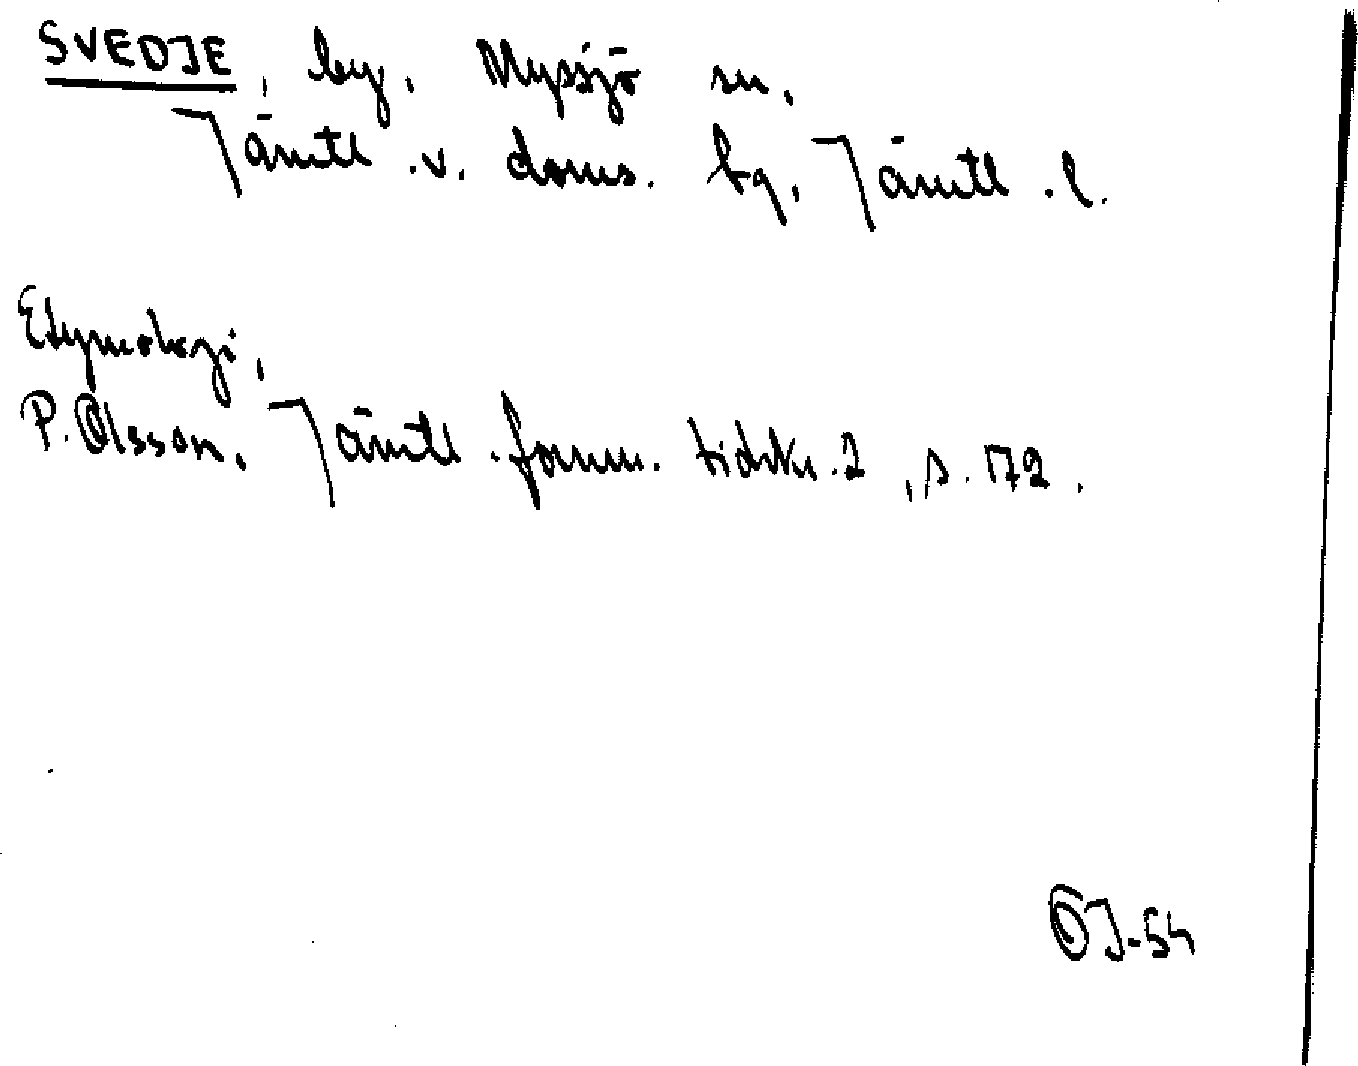 SVEDJE, by, Myssjö sn,
Jämtl. v. doms. tg, Jämtl. l.
Etymologi,
P. Olsson, Jämtl. fornm. tidskr. 2, s. 172.
OJ-54